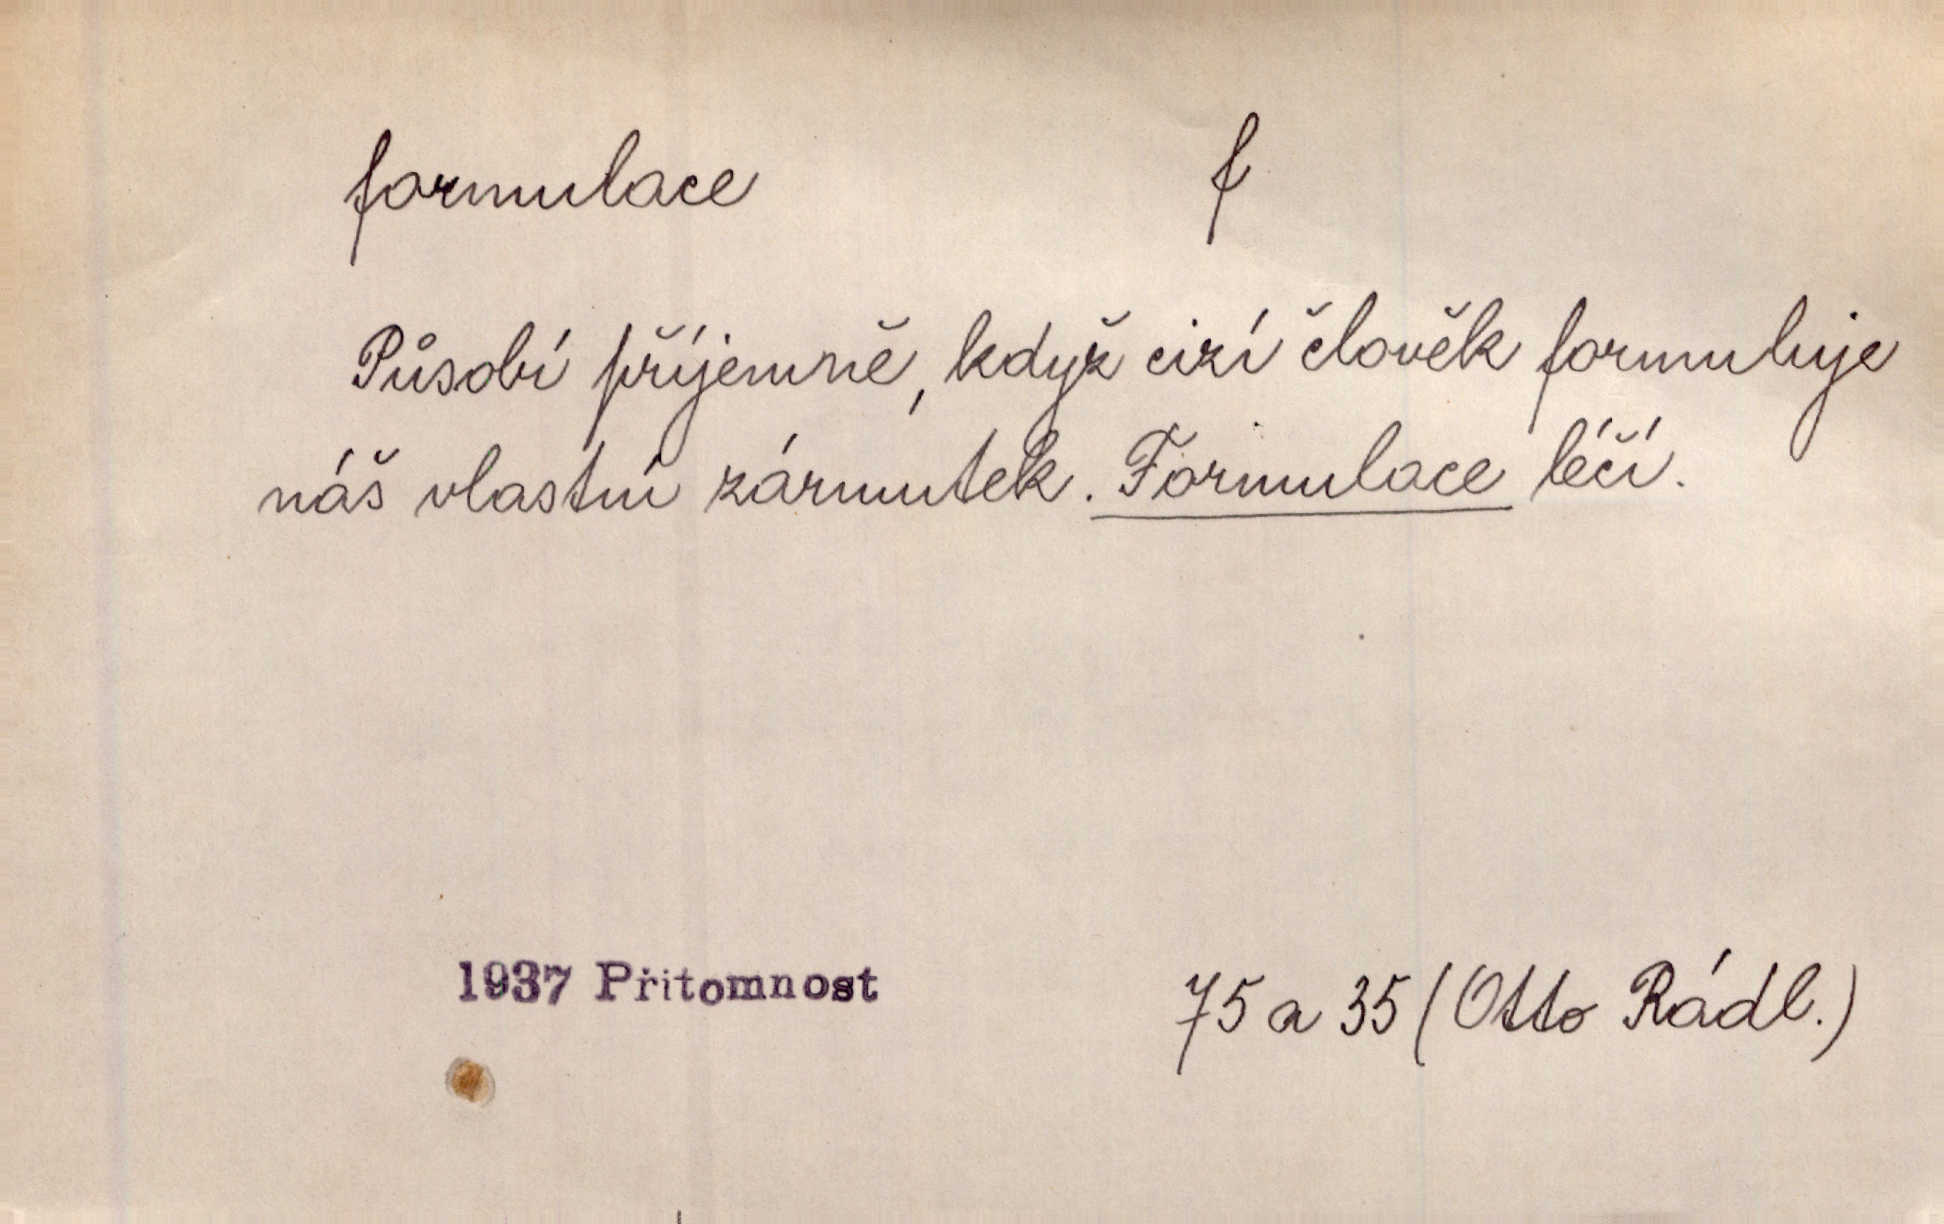 formulace f
Působí příjemně, když cizí člověk formuluje
náš vlastní zármutek. Formulace léčí.
1937 Přítomnost 75 a 35 (Otto Rádl.)